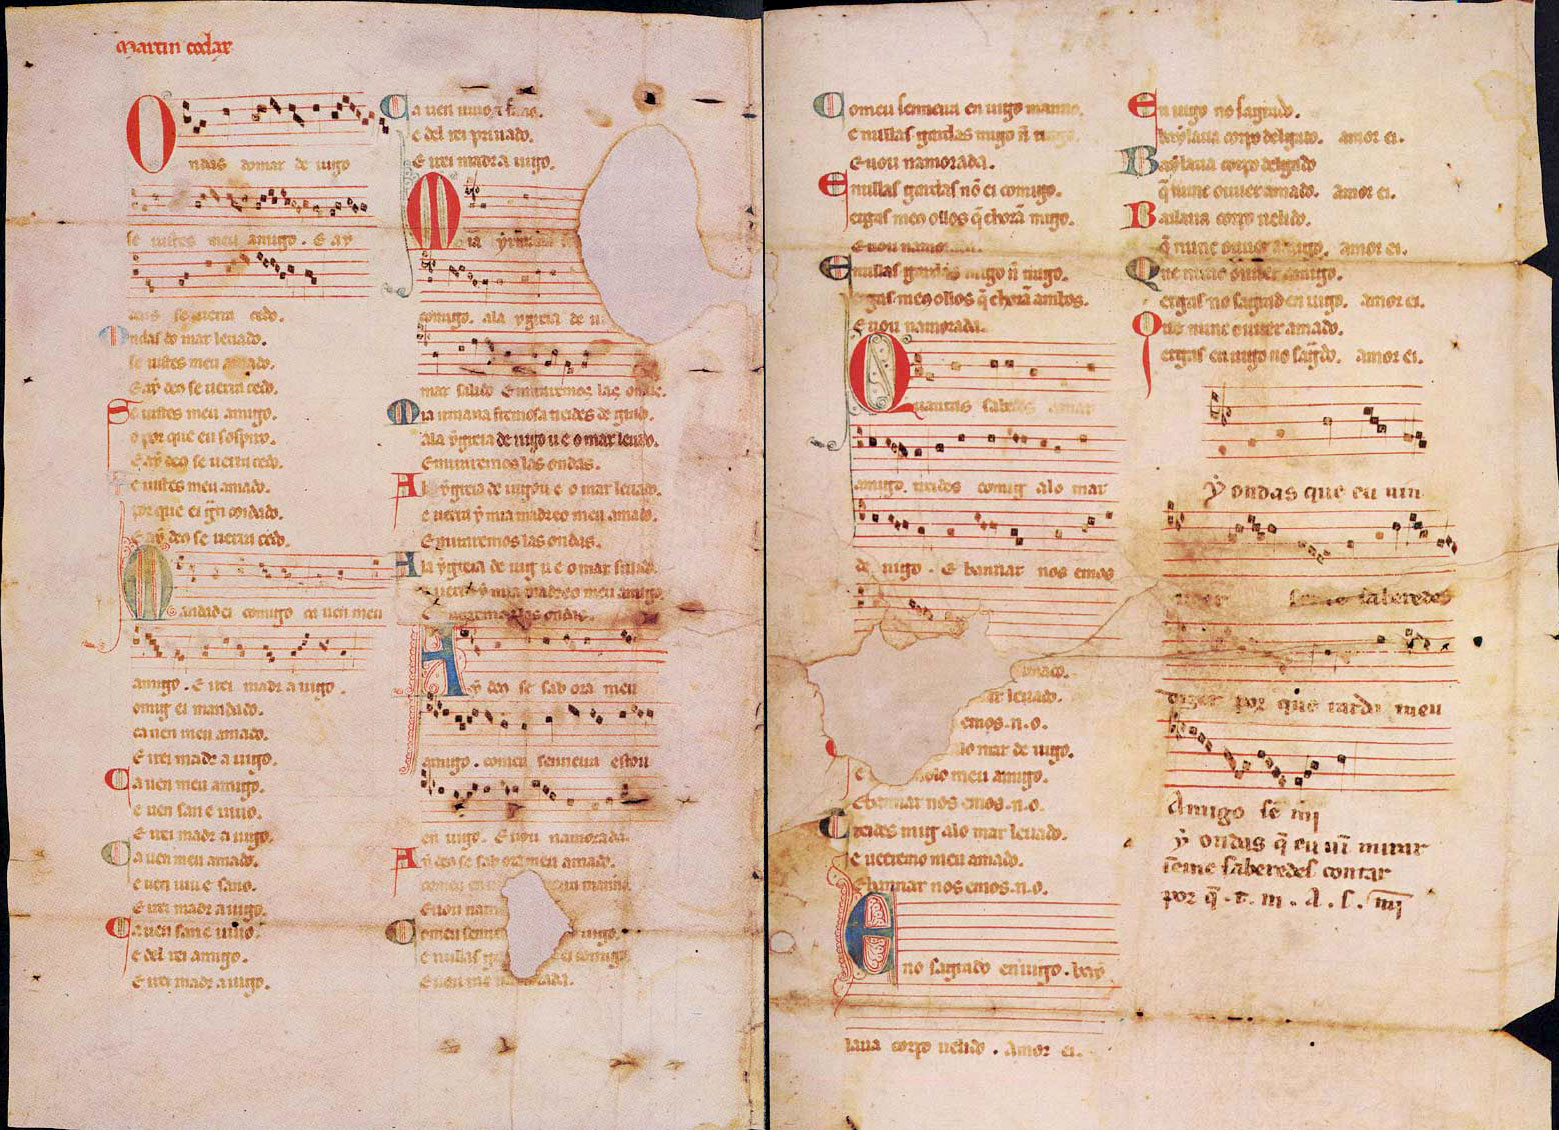 Martin codax
Ondas do mar de uigo
se uistes meu amigo. E ay
deus se uerra cedo.
Ondas do mar leuado.
se uistes meu amado.
E aỹ deo se uerra cedo.
Se uistes meu amigo.
o por que eu sospiro.
E aỹ deo se uerra cedo.
Se uistes meu amado.
por que ei gñ coidado.
E aỹ deo se uerra cedo.
Mandad ei comigo ca uen meu
amigo. E irei madr a uigo.
omig ei mandado.
ca uen meu amado.
E irei madr a uigo.
Ca uen meu amigo.
e uen san e uiuo.
E irei madr a uigo.
Ca uen meu amado.
e uen uiu e sano.
E irei madr a uigo.
Ca uen san e uiuo.
e del rei amigo.
E irei madr a uigo.
Ca uen uiuo e sano.
e del rei priuado.
E irei madr a uigo.
Mia
comigo. a la ygreia de u
mar salido E miraremos las ondas.
Mia irmana fremosa treides de grado.
a la ỹgreia de uigo u e o mar leuado.
E miraremos las ondas.
A la ỹgreia de uigo u e o mar leuado.
e uerra ỹ mia madre o meu amado.
E miraremos las ondas.
A la ỹgreia de uig u e o mar salido.
e uerra ỹ mia madre o meu amigo.
E miraremos las ondas.
Aỹ deo se sab ora meu
amigo. com eu senneira estou
en uigo. E uou namorada.
Aỹ deo se sab ora meu amado.
com eu en uigo senneira manno.
E uou nam
Com eu senne uigo.
e nullas ga ei comigo.
E uou na orada.
Com eu senneira en uigo manno.
e nullas gardas migo ñ trago.
E uou namorada.
E nullas gardas nõ ei comigo.
ergas meo ollos q̃ chorã migo.
E uou namorada.
E nullas gardas migo ñ trago.
ergas meo ollos q̃ chorã ambos.
E uou namorada.
Quantas sabedes amar
amigo. treides comig a lo mar
de uigo. E bannar nos emos
amado.
ar leuado.
emos .n.o.
a lo mar de uigo.
e meu amigo.
E bannar nos emos .n.o.
Treides mig a lo mar leuado.
e ueeremo meu amado.
E bannar nos emos .n.o.
E no sagrado en uigo. bay
laua corpo uelido. Amor ei.
En uigo no sagrado.
baỹlaua corpo delgado. amor ei.
Baỹlaua corpo delgado
q̃ nunc ouuer amado. amor ei.
Bailaua corpo uelido.
q̃ nunc ouuer amigo. amor ei.
Que nunc ouuer amigo.
ergas no sagrad en uigo. amor ei.
Que nunc ouuer amado.
ergas en uigo no sagrado. amor ei.
ỹ ondas que eu uin
ueer se me saberedes
dizer por que tarda meu
Amigo sẽ mĩ
ỹ ondas q̃ eu uĩ mirar
se me saberedes contar
por q̃ .t. m. A. s. mĩ